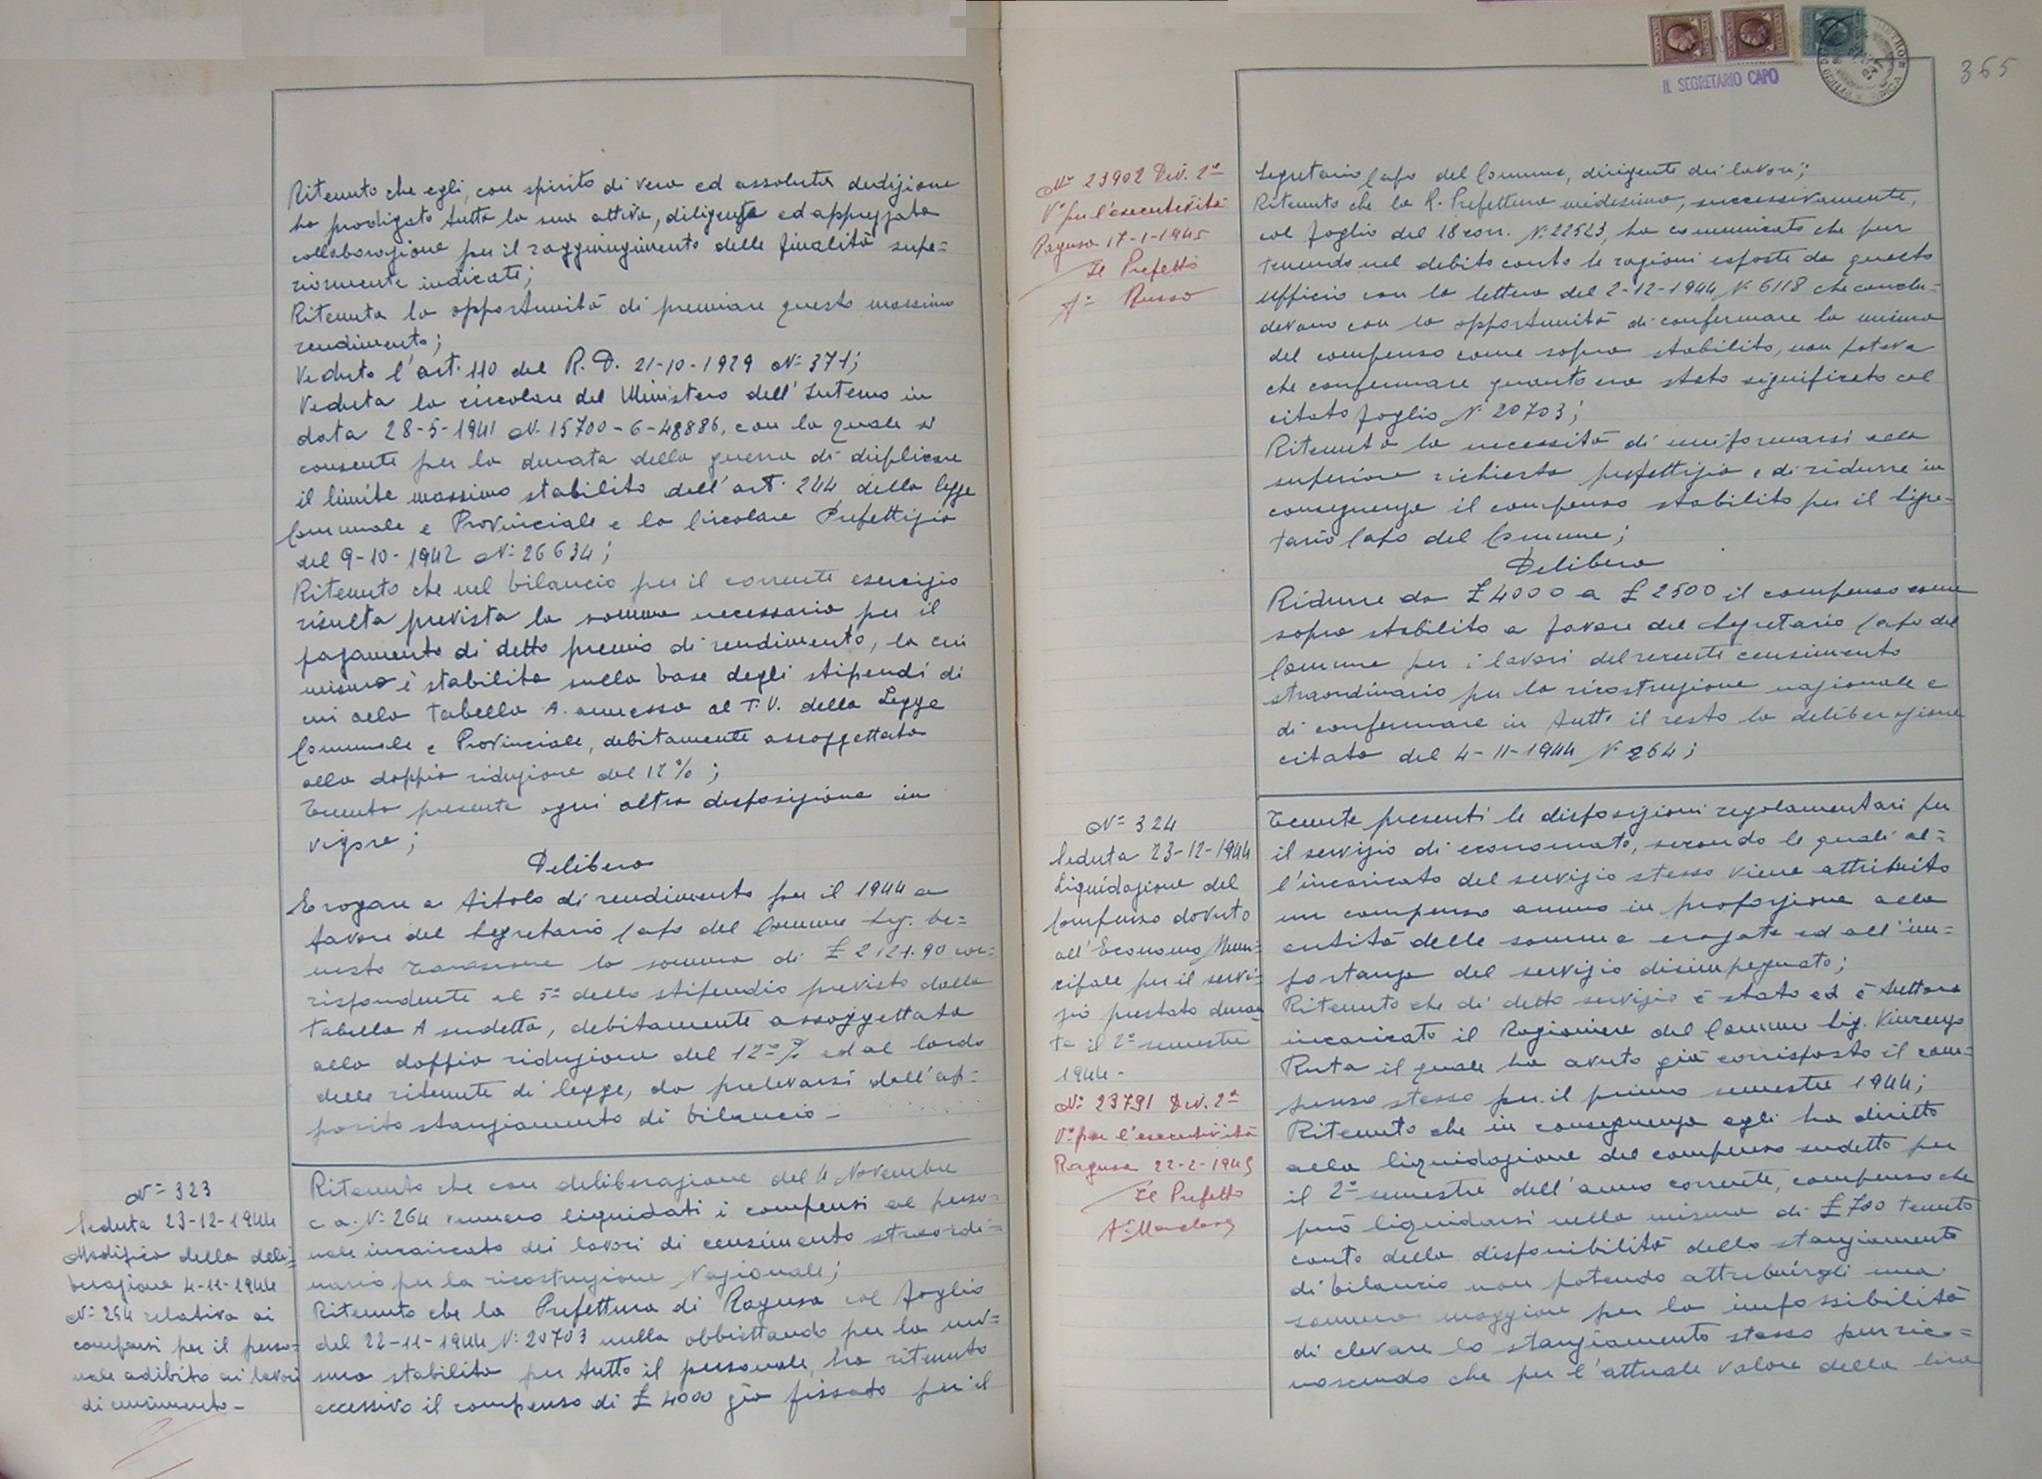 Ritenuto che egli, con spirito di vera ed assoluta dedizione
ha prodigato tutta la sua attiva, diligente ed apprezzata
collaborazione per il raggiungimento delle finalità supe=
riormente indicate;
Ritenuta la opportunità di premiare questo massimo
rendimento;
Veduto l'art. 110 del R. D. 21-10-1929 N. 371;
Veduta la circolare del Ministero dell'Interno in
data 28-5-1941 N. 15700-6-48886, con la quale si
consente per la durata della guerra di duplicare
il limite massimo stabilito dell'art. 244 della legge
Comunale e Provinciale e la Circolare Prefettizia
del 9-10-1942 N. 26634;
Ritenuto che nel bilancio per il corrente esercizio
risulta prevista la somma necessaria per il
pagamento di detto premio di rendimento, la cui
misura è stabilita sulla base degli stipendi di
cui alla tabella A. annessa al T.U. della Legge
Comunale e Provinciale, debitamente assoggettata
alla doppia riduzione del 12%;
Tenuta presente ogni altra disposizione in
vigore;
Delibera
Erogare a titolo di rendimento per il 1944 a
favore del Segretario Capo del Comune Sig.
la somma di £ 2121.90 cor=
rispondente al 5° dello stipendio previsto dalla
tabella A sudetta, debitamente assoggettata
alla doppia riduzione del 12% ed al lordo
delle ritenute di legge, da prelevarsi dall'ap=
posito stanziamento di bilancio -
N° 323
Seduta 23-12-1944
Modifica della deli=
berazione 4-11-1944
N° 264 relativa ai
compensi per il perso=
nale adibito ai lavori
di censimento -
Ritenuto che con deliberazione del 4 Novembre
c.a. N° 264 vennero liquidati i compensi al perso=
nale incaricato dei lavori di censimento straordi=
nario per la ricostruzione Nazionale;
Ritenuto che la Prefettura di Ragusa col foglio
del 22-11-1944 N° 20703 nulla obbiettando per la mi=
sura stabilita per tutto il personale, ha ritenuto
eccessivo il compenso di £ 4000 già fissato per il
IL SEGRETARIO CAPO
365
N° 23902 Div. 2ª
V° per l'esecutività
Ragusa 17-1-1945
Il Prefetto
f° Russo
Segretario Capo del Comune, dirigente dei lavori;
Ritenuto che la R. Prefettura medesima, successivamente,
col foglio del 18 corr. N. 22523, ha comunicato che pur
tenendo nel debito conto le ragioni esposte da questo
Ufficio con la lettera del 2-12-1944 N. 6118 che conclu=
devano con la opportunità di confermare la misura
del compenso come sopra stabilito, non poteva
che confermare quanto era stato significato col
citato foglio N. 20703;
Ritenuta la necessità di uniformarsi alla
superiore richiesta prefettizia e di ridurre in
conseguenza il compenso stabilito per il Segre=
tario Capo del Comune;
Delibera
Ridurre da £ 4000 a £ 2500 il compenso come
sopra stabilito a favore del Segretario Capo del
Comune per i lavori del recente censimento
straordinario per la ricostruzione nazionale e
di confermare in tutto il resto la deliberazione
citata del 4-11-1944 N. 264;
N° 324
Seduta 23-12-1944
Liquidazione del
Compenso dovuto
all'Economo Muni=
cipale per il servi=
zio prestato duran=
te il 2° semestre
1944 -
N° 23791 Div. 2ª
V° per l'esecutività
Ragusa 22-2-1945
Il Prefetto
Tenute presenti le disposizioni regolamentari per
il servizio di economato, secondo le quali al=
l'incaricato del servizio stesso viene attribuito
un compenso annuo in proporzione alla
entità delle somme erogate ed all'im=
portanza del servizio disimpegnato;
Ritenuto che di detto servizio è stato ed è tuttora
incaricato il Ragioniere del Comune Sig. Vincenzo
Ruta il quale ha avuto già corrisposto il com=
penso stesso per il primo semestre 1944;
Ritenuto che in conseguenza egli ha diritto
alla liquidazione del compenso sudetto per
il 2° semestre dell'anno corrente, compenso che
può liquidarsi nella misura di £ 700 tenuto
conto della disponibilità dello stanziamento
di bilancio non potendo attribuirgli una
somma maggiore per la impossibilità
di elevare lo stanziamento stesso pur rico=
noscendo che per l'attuale valore della lira